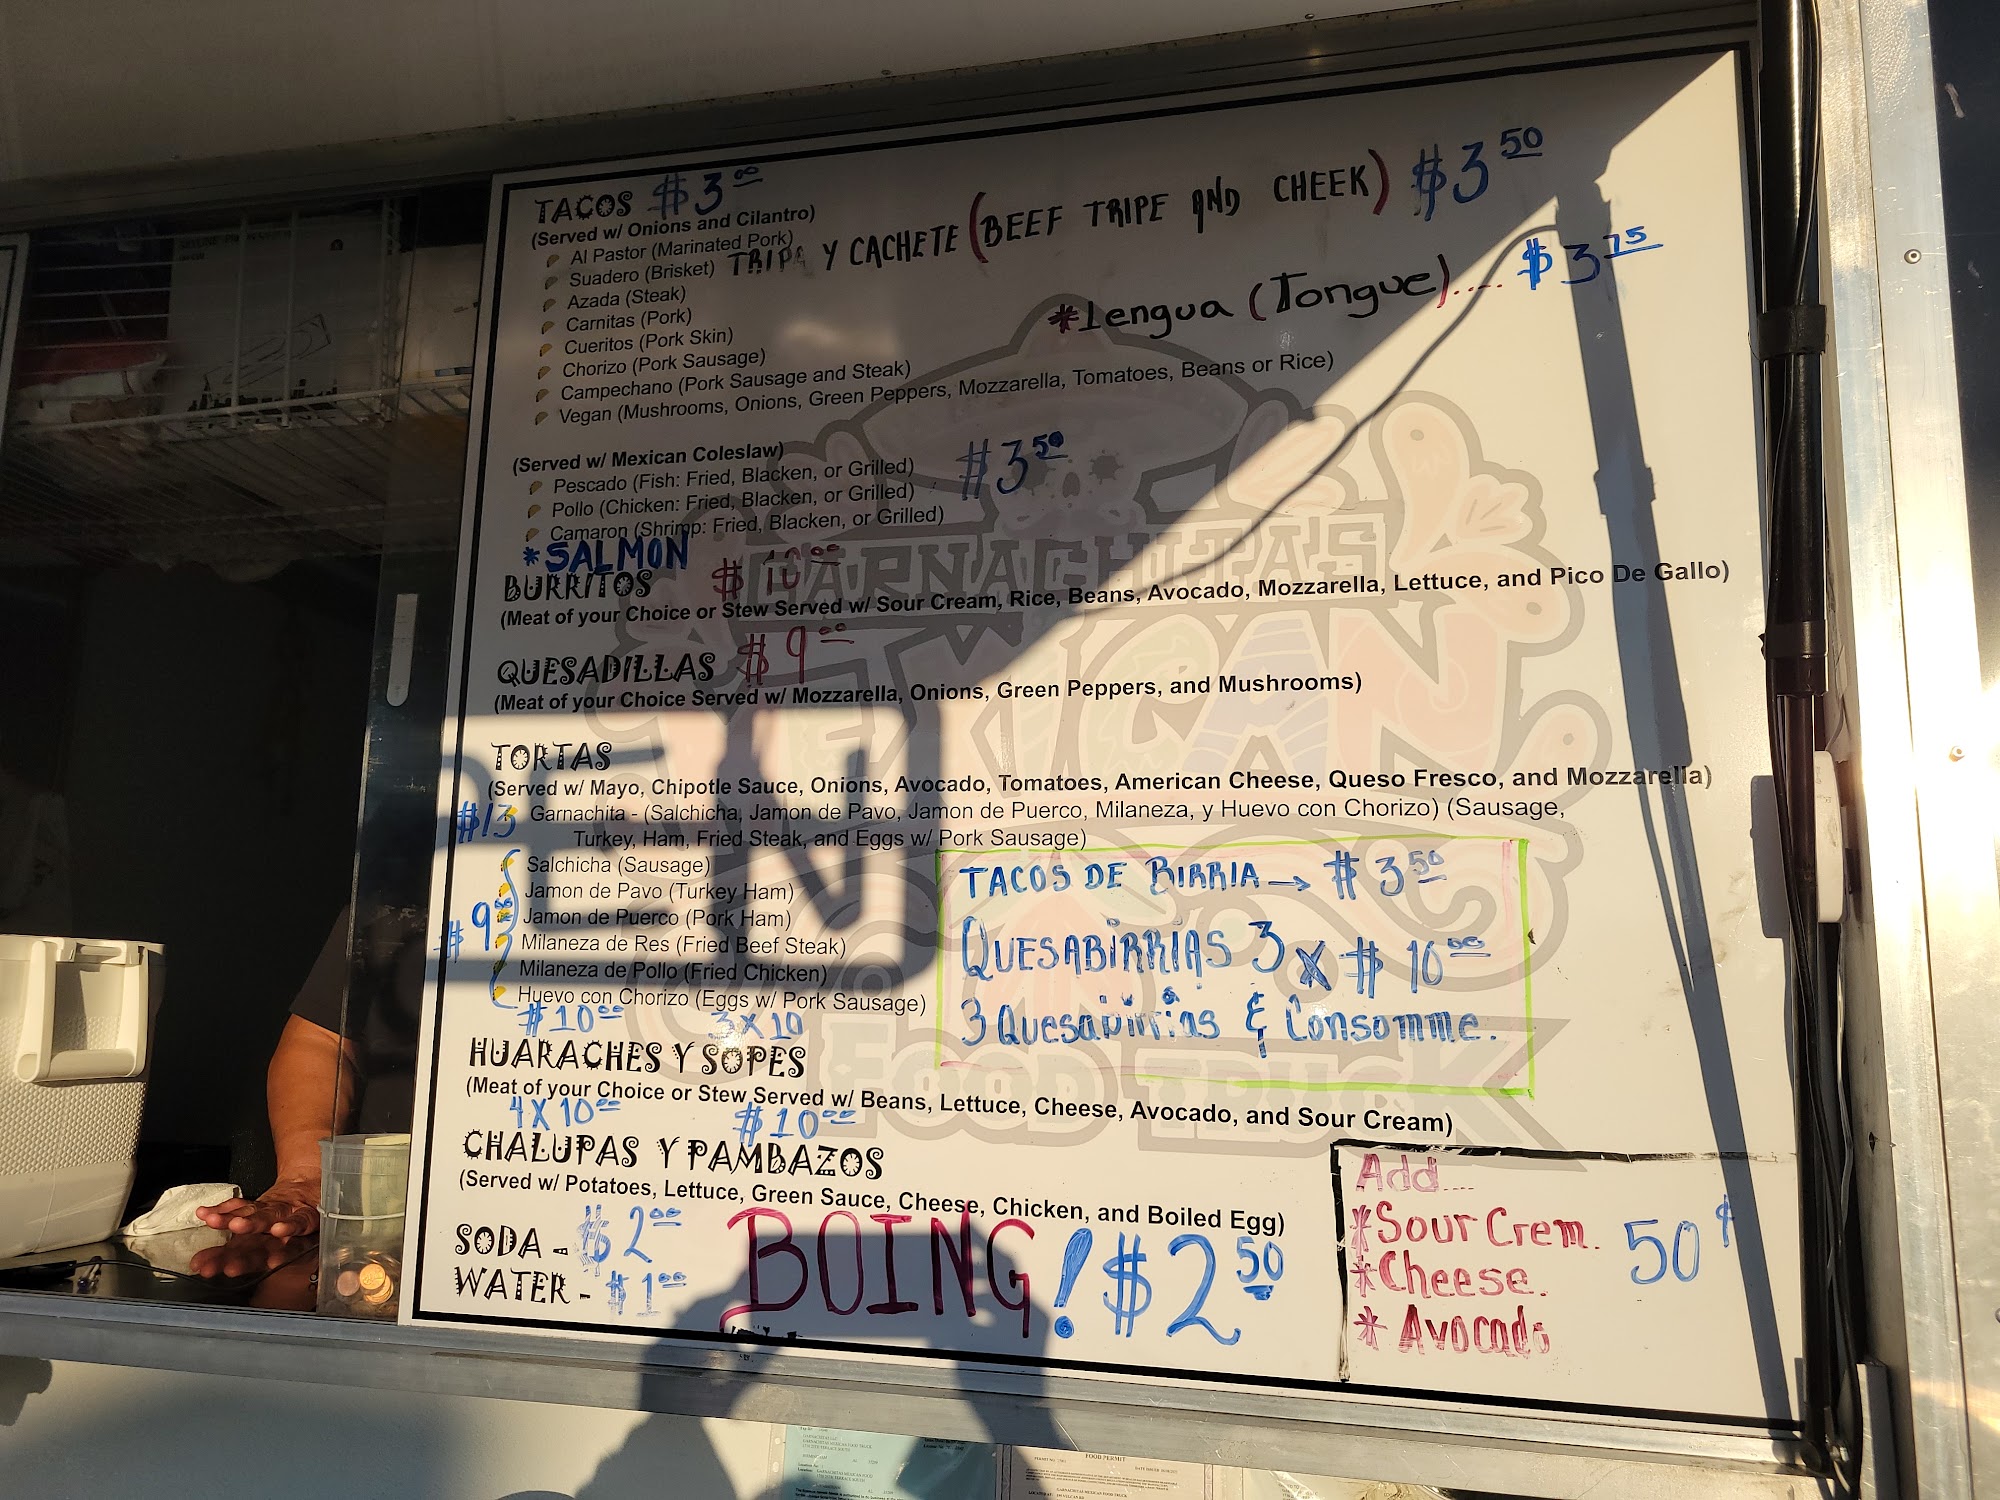 TACOS $3.00
(Served w/ Onions and Cilantro)
Al Pastor (Marinated Pork)
Suadero (Brisket) TRIPA Y CACHETE (BEEF TRIPE AND CHEEK) $3.50
Azada (Steak)
*Lengua (Tongue).... $3.75
Carnitas (Pork)
Cueritos (Pork Skin)
Chorizo (Pork Sausage)
Campechano (Pork Sausage and Steak)
Vegan (Mushrooms, Onions, Green Peppers, Mozzarella, Tomatoes, Beans or Rice)
(Served w/ Mexican Coleslaw)
Pescado (Fish: Fried, Blacken, or Grilled) $3.50
Pollo (Chicken: Fried, Blacken, or Grilled)
Camaron (Shrimp: Fried, Blacken, or Grilled)
*SALMON
BURRITOS $10.00
(Meat of your Choice or Stew Served w/ Sour Cream, Rice, Beans, Avocado, Mozzarella, Lettuce, and Pico De Gallo)
QUESADILLAS $9.00
(Meat of your Choice Served w/ Mozzarella, Onions, Green Peppers, and Mushrooms)
TORTAS
(Served w/ Mayo, Chipotle Sauce, Onions, Avocado, Tomatoes, American Cheese, Queso Fresco, and Mozzarella)
$13 Garnachita - (Salchicha, Jamon de Pavo, Jamon de Puerco, Milaneza, y Huevo con Chorizo) (Sausage,
Turkey, Ham, Fried Steak, and Eggs w/ Pork Sausage)
Salchicha (Sausage)
Jamon de Pavo (Turkey Ham)
$9.00 Jamon de Puerco (Pork Ham)
Milaneza de Res (Fried Beef Steak)
Milaneza de Pollo (Fried Chicken)
Huevo con Chorizo (Eggs w/ Pork Sausage)
TACOS DE BIRRIA → $3.50
QUESABIRRIAS 3 x $10.00
3 Quesabirrias & Consomme.
$10.00 3 X 10
HUARACHES Y SOPES
(Meat of your Choice or Stew Served w/ Beans, Lettuce, Cheese, Avocado, and Sour Cream)
4 X 10.00 $10.00
CHALUPAS Y PAMBAZOS
(Served w/ Potatoes, Lettuce, Green Sauce, Cheese, Chicken, and Boiled Egg)
SODA - $2.00
WATER - $1.00
BOING! $2.50
Add....
*Sour Crem. 50¢
*Cheese.
*Avocado
GARNACHITA'S
MEXICAN
FOOD TRUCK
FOOD PERMIT